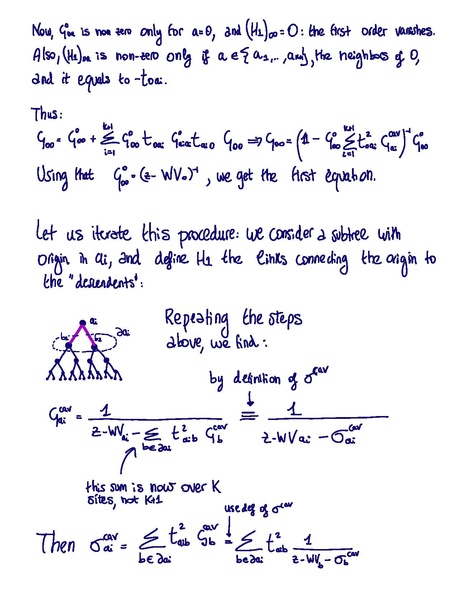 Now, G⁰₀ₐ is non zero only for a=0, and (H₁)₀₀=0: the first order vanishes.
Also, (H₁)₀ₐ is non-zero only if a ∈ {a₁,..,aₖ₊₁}, the neighbors of 0,
and it equals to -t₀ₐᵢ.
Thus:
G₀₀ = G⁰₀₀ + Σᵢ₌₁ᵏ⁺¹ G⁰₀₀ t₀ₐᵢ G⁰ₐᵢₐᵢ tₐᵢ₀ G₀₀ ⇒ G₀₀ = (1 - G⁰₀₀ Σᵢ₌₁ᵏ⁺¹ t²₀ₐᵢ Gₐᵢᶜᵃᵛ)⁻¹ G⁰₀₀
Using that G⁰₀₀ = (z - WV₀)⁻¹, we get the first equation.
Let us iterate this procedure: we consider a subtree with
origin in aᵢ, and define H₁ the links connecting the origin to
the "descendents":
aᵢ
b₁ b₂ ∂aᵢ
Repeating the steps
above, we find:
by definition of σᶜᵃᵛ
Gₐᵢᶜᵃᵛ = 1 / (z - WVₐᵢ - Σ_{b∈∂aᵢ} t²ₐᵢb G_bᶜᵃᵛ) ≡ 1 / (z - WVₐᵢ - σₐᵢᶜᵃᵛ)
this sum is now over K
sites, not K+1
use def of σᶜᵃᵛ
Then σₐᵢᶜᵃᵛ = Σ_{b∈∂aᵢ} t²ₐᵢb G_bᶜᵃᵛ = Σ_{b∈∂aᵢ} t²ₐᵢb 1 / (z - WV_b - σ_bᶜᵃᵛ)